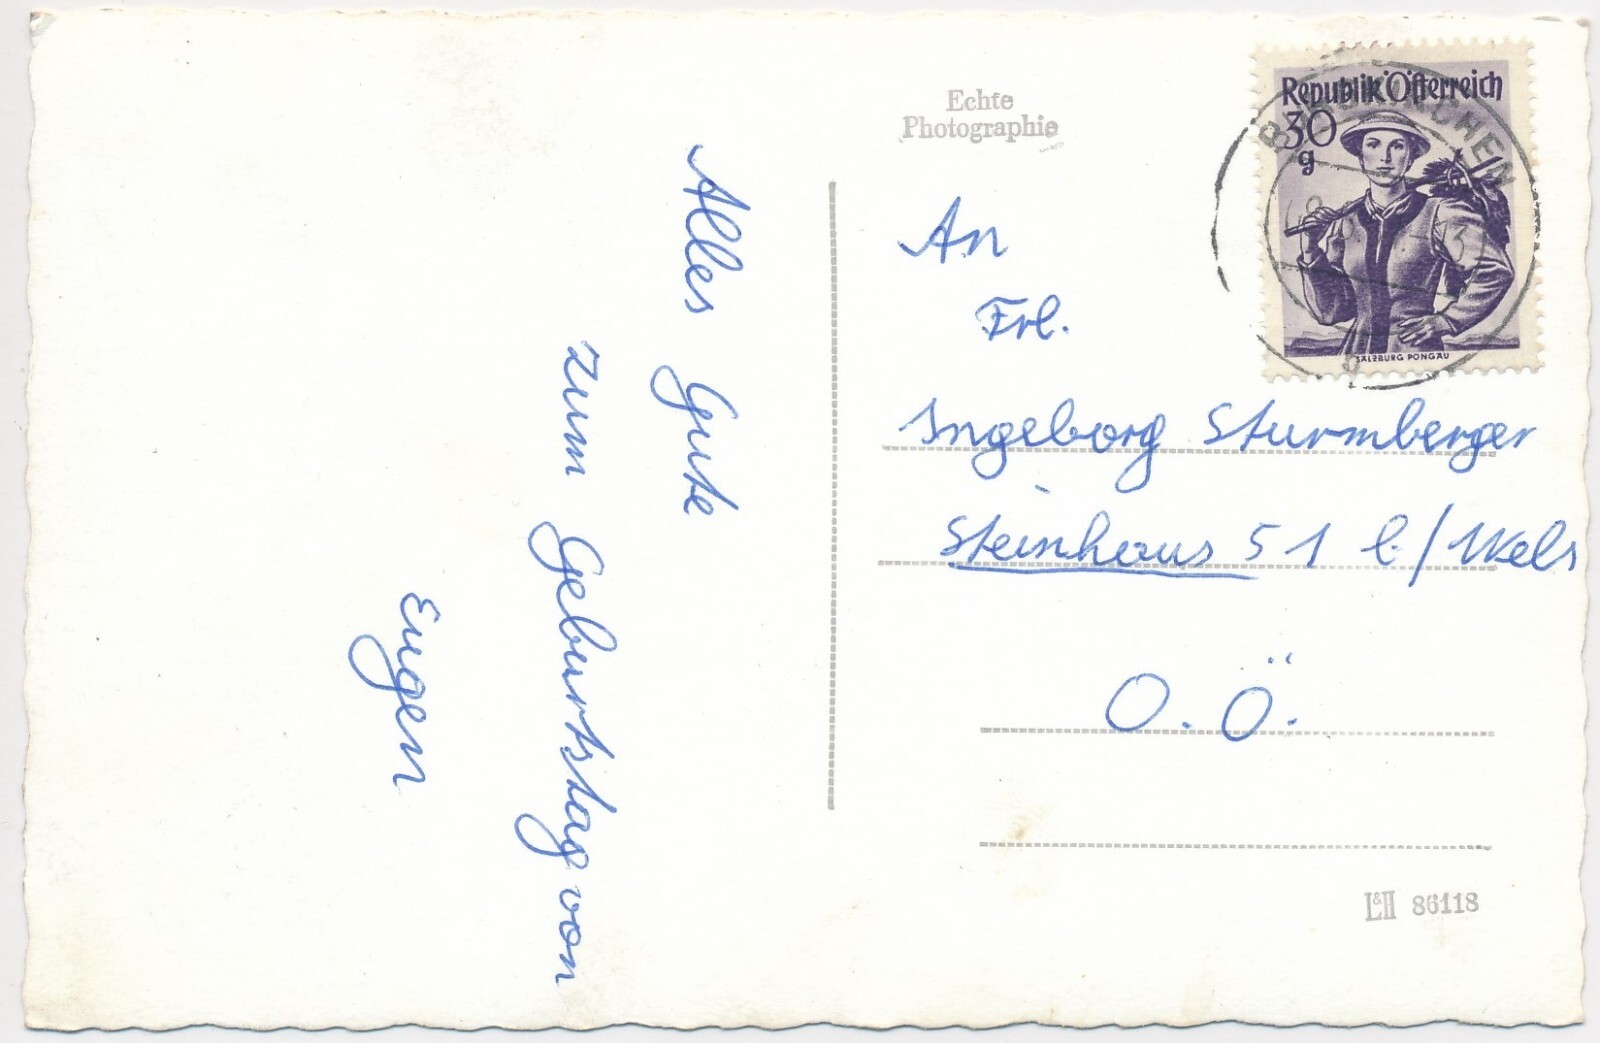 Echte
Photographie
Republik Österreich
30
g
SALZBURG PONGAU
Alles Gute
zum Geburtstag von
Eugen
An
Frl.
Ingeborg Sturmberger
Steinhaus 51 b./Wels
O.Ö.
L&H 86118